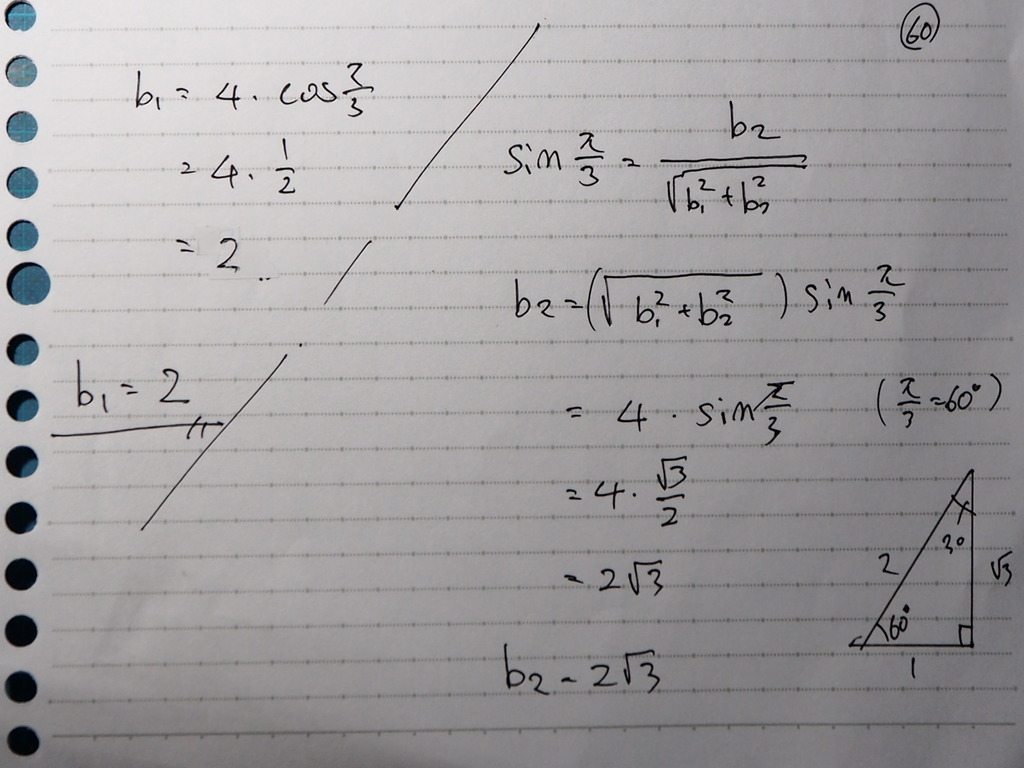 60
b₁ = 4 · cos π/3
= 4 · 1/2
= 2
b₁ = 2
sin π/3 = b₂/√(b₁² + b₂²)
b₂ = (√(b₁² + b₂²)) sin π/3
= 4 · sin π/3 (π/3 = 60°)
= 4 · √3/2
= 2√3
b₂ = 2√3
30
2
√3
60°
1